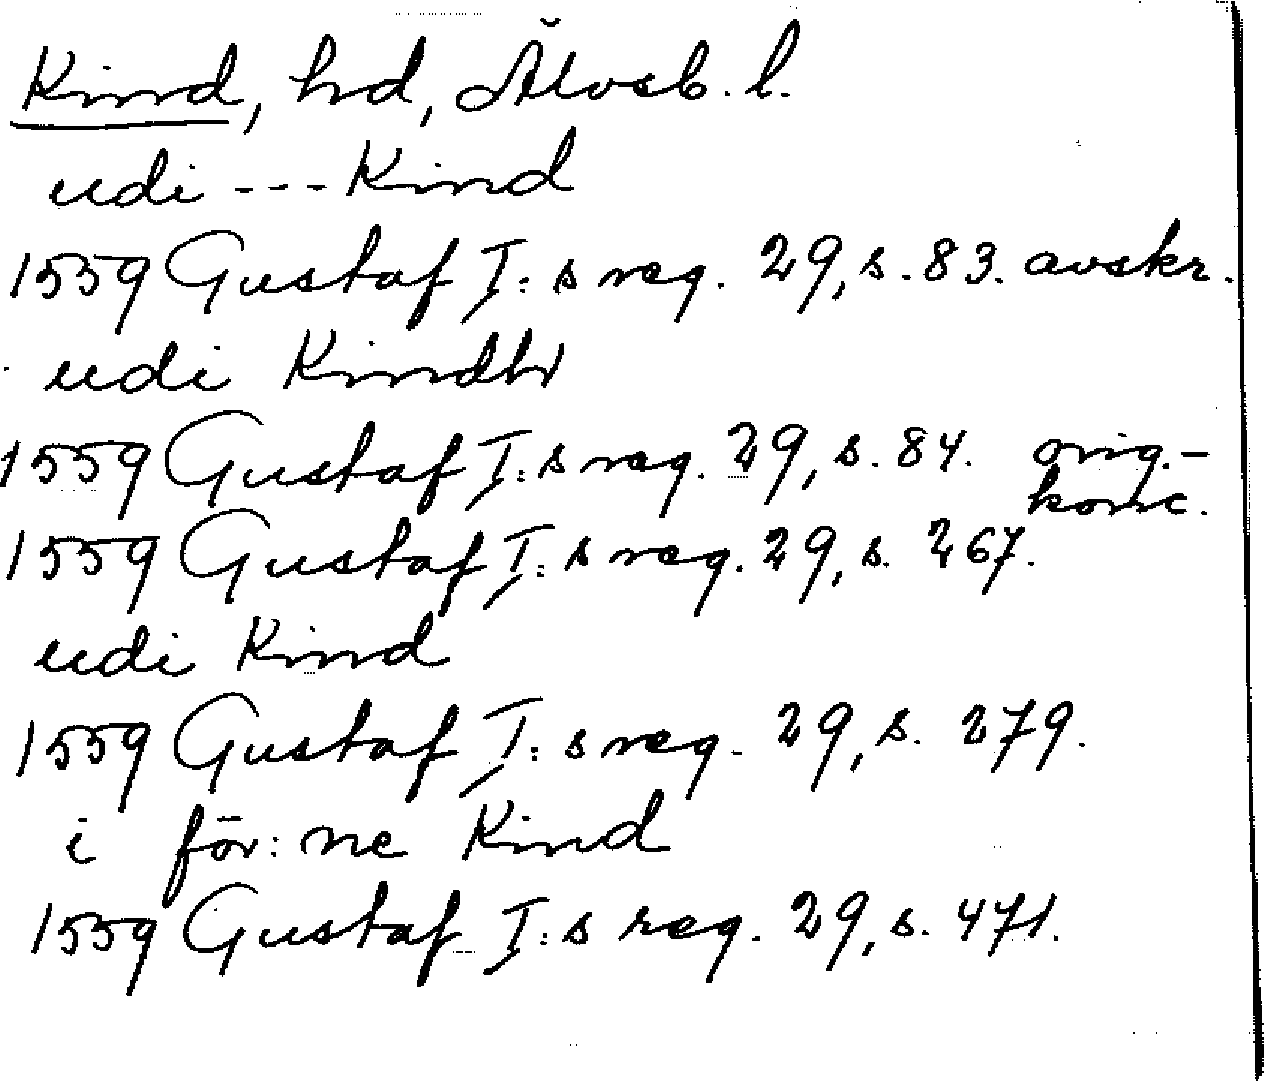 Kind, hd, Älvsb. l.
udi --- Kind
1559 Gustaf I:s reg. 29, s. 83. avskr.
udi Kindh
1559 Gustaf I:s reg. 29, s. 84. orig.-
konc.
1559 Gustaf I:s reg. 29, s. 267.
udi Kind
1559 Gustaf I:s reg. 29, s. 279.
i för:ne Kind
1559 Gustaf I:s reg. 29, s. 471.